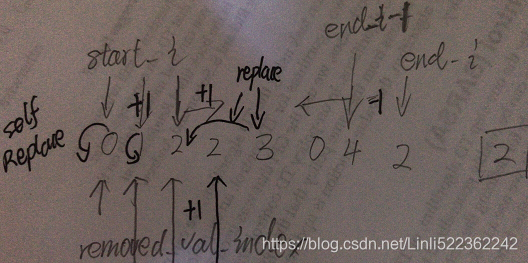 end_i-1
start_i
end_i
replace
+1
+1
-1
self
Replace
0 0 2 2 3 0 4 2
2
+1
removed_val_index
https://blog.csdn.net/Linli522362242